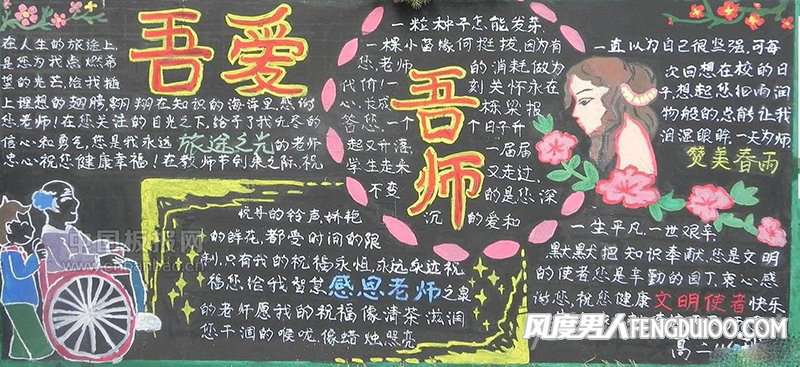 吾爱
吾师
在人生的旅途上,
是您为我点燃希
望的光芒,给我插
上理想的翅膀,翱翔在知识的海洋里,您的
您老师!在您关注的目光之下,给予了我无尽的
信心和勇气,您是我永远 旅途之光 的老师
忠心祝您健康幸福!在教师节到来之际,祝
一粒种子怎能发芽,
一棵小苗缘何挺拔,因为有
您,老师 的消耗做为
代价!一 刻关怀永在
心,长成 栋梁报
答您,一个 个日子升
起又升落 一届届
学生走来 又走过
不变 的是您深
沉 的爱和
一直以为自己很坚强,可每
次回想在校的日
子,想起您如雨润
物般的总能让我
泪湿眼眸,一天为师
赞美春雨
悦耳的铃声,娇艳
的鲜花,都受时间的限
制,只有我的祝福永恒,永远永远祝
福您,给我智慧 感恩老师 之泉
的老师愿我的祝福像清茶滋润
您干涸的喉咙,像蜡烛照亮
一生平凡,一世艰辛
默默把知识奉献,您是文明
的使者,您是辛勤的园丁,衷心感
谢您,祝您健康 文明使者 快乐
高二
中国板报网
风度男人FENGDU100.COM